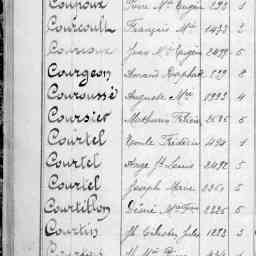 Coupoux Pierre Mie Eugène 293 1
Courcoult François Mie 1433 2
Courcoux Jean Mie Eugène 2499 5
Courgeon Amand Raphaël 229 8
Couroussé Auguste Mie 1993 4
Coursier Mathurin Félicien 2686 5
Courtel Emile Frédéric 494 1
Courtel Ange Fs Louis 2492 5
Courtel Joseph Marie 2361 5
Courtillon Désiré Mie Fçois 2226 5
Courtin Jh Célestin Jules 1253 3
Mie